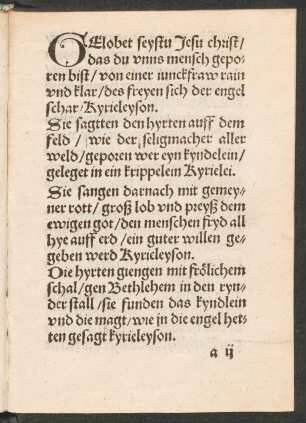 GElobet seystu Jesu christ/
das du vnns mensch gepo⸗
ren bist/ von einer iunckfraw rain
vnd klar/ des freyen sich der engel
schar/ Kyrieleyson.
Sie sagtten den hyrten auff dem
feld / wie der seligmacher aller
weld/ geporen wer eyn kyndelein/
geleget in ein krippelein Kyrielei.
Sie sangen darnach mit gemey⸗
ner rott/ groß lob vnd preyß dem
ewigen got/ den menschen fryd all
hye auff erd /ein guter willen ge⸗
geben werd Kyrieleyson.
Die hyrten giengen mit frölichem
schal/ gen Bethlehem in den ryn⸗
der stall /sie funden das kyndlein
vnd die magt/ wie in die engel het⸗
ten gesagt kyrieleyson.
a ij